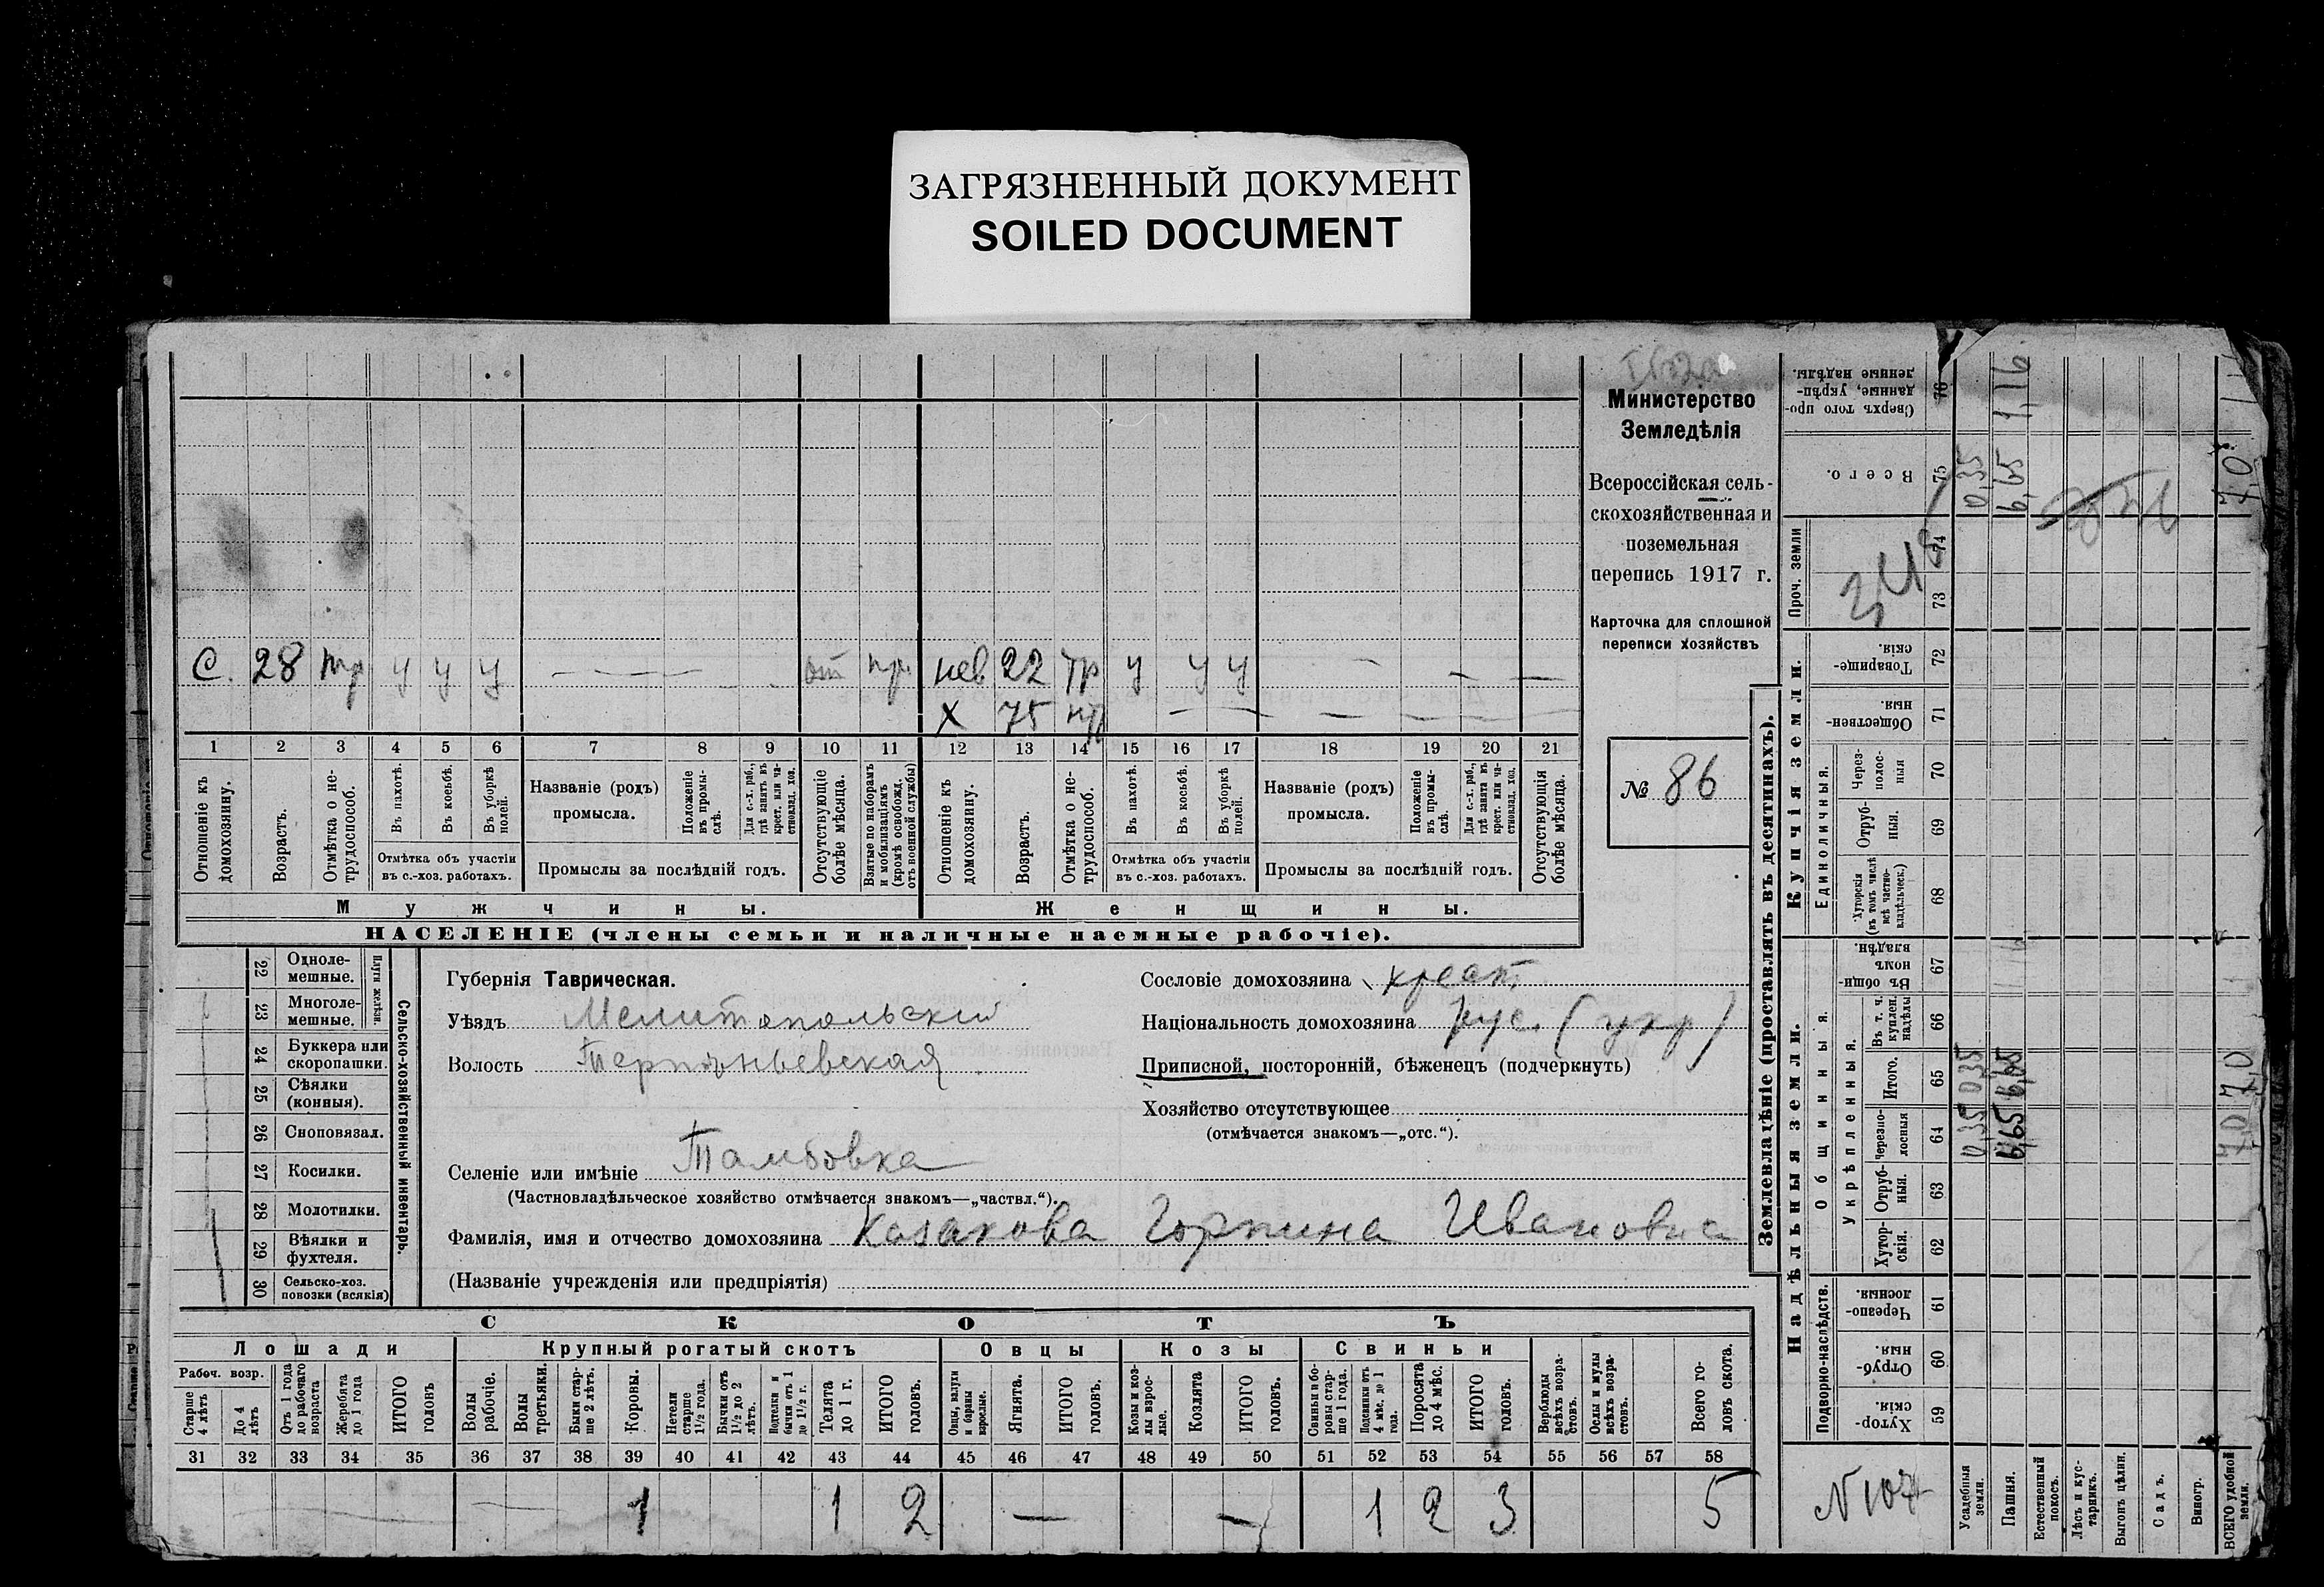 ЗАГРЯЗНЕННЫЙ ДОКУМЕНТ
SOILED DOCUMENT
Министерство
Земледѣлія
Всероссійская сель-
скохозяйственная и
поземельная
перепись 1917 г.
Карточка для сплошной
переписи хозяйствъ
№ 86
С. 28 тр у у у — — — от пр. нев 22 тр у у у — — —
Х 75 нтр — — — — —
1 2 3 4 5 6 7 8 9 10 11 12 13 14 15 16 17 18 19 20 21
Отношеніе къ домохозяину.
Возрастъ.
Отмѣтка о не-трудоспособ.
Въ пахотѣ.
Въ косьбѣ.
Въ уборкѣ полей.
Отмѣтка объ участіи
въ с.-хоз. работахъ.
Названіе (родъ)
промысла.
Положеніе въ промы-слѣ.
Для с.-х. раб., гдѣ занятъ въ крест. или ча-стновлад. хоз.
Промыслы за послѣдній годъ.
Отсутствующіе болѣе мѣсяца.
Взятые по наборамъ и мобилизаціямъ (кромѣ освобожд. отъ военной службы)
Отношеніе къ домохозяину.
Возрастъ.
Отмѣтка о не-трудоспособ.
Въ пахотѣ.
Въ косьбѣ.
Въ уборкѣ полей.
Отмѣтка объ участіи
въ с.-хоз. работахъ.
Названіе (родъ)
промысла.
Положеніе въ промы-слѣ.
Для с.-х. раб., гдѣ занята въ крест. или ча-стновлад. хоз.
Промыслы за послѣдній годъ.
Отсутствующія болѣе мѣсяца.
Мужчины. Женщины.
НАСЕЛЕНІЕ (члены семьи и наличные наемные рабочіе).
22 Одноле-мешные.
23 Многоле-мешные.
Плуги желѣзн.
24 Буккера или скоропашки.
25 Сѣялки (конныя).
26 Сноповязал.
27 Косилки.
28 Молотилки.
29 Вѣялки и фухтеля.
30 Сельско-хоз. повозки (всякія)
Сельско-хозяйственный инвентарь.
Губернія Таврическая.
Уѣздъ Мелитопольскій
Волость Терпѣньевская
Селеніе или имѣніе Тамбовка
(Частновладѣльческое хозяйство отмѣчается знакомъ—„частвл.“).
Фамилія, имя и отчество домохозяина Казакова Горпина Ивановна
(Названіе учрежденія или предпріятія)
Сословіе домохозяина крест.
Національность домохозяина рус. (укр)
Приписной, посторонній, бѣженец (подчеркнуть)
Хозяйство отсутствующее
(отмѣчается знакомъ—„отс.“).
СКОТЪ
Лошади Крупный рогатый скотъ Овцы Козы Свиньи
Рабоч. возр.
Старше 4 лѣтъ
До 4 лѣтъ
Отъ 1 года до рабочаго возраста
Жеребята до 1 года
ИТОГО головъ
Волы рабочіе.
Волы третьяки.
Быки стар-ше 2 лѣтъ.
Коровы.
Нетели старше 1½ года.
Бычки отъ 1½ до 2 лѣтъ.
Подтелки и бычки отъ 1 до 1½ г.
Телята до 1 г.
ИТОГО головъ.
Овцы, валухи и бараны взрослые.
Ягнята.
ИТОГО головъ.
Козы и коз-лы взрос-лые.
Козлята
ИТОГО головъ.
Свиньи и бо-ровы стар-ше 1 года.
Подсвинки отъ 4 мѣс. до 1 года.
Поросята до 4 мѣс.
ИТОГО головъ.
Верблюды всѣхъ возра-стовъ.
Ослы и мулы всѣхъ возра-стовъ.
Всего го-ловъ скота.
31 32 33 34 35 36 37 38 39 40 41 42 43 44 45 46 47 48 49 50 51 52 53 54 55 56 57 58
1 1 2 — — 1 2 3 5
Землевладѣніе (проставлять въ десятинахъ).
Надѣльныя земли. Купчія земли.
Проч. земли
Подворно-наслѣдств.
Общинныя.
Укрѣпленныя.
Единоличныя.
Хутор-скія. 59
Отруб-ныя. 60
Черезпо-лосныя. 61
Хутор-скія. 62
Отруб-ныя. 63
Черезпо-лосныя 64
Итого. 65
Въ т. ч. куплен. надѣлы 66
Въ общи-номъ владѣн. 67
Хуторскія (въ томъ числѣ всѣ частно-владѣльческ.) 68
Отруб-ныя. 69
Через-полос-ныя 70
Обществен-ныя. 71
Товарище-скія. 72
73
74
Всего. 75
Сверхъ того про-данные, укрѣп-ленные надѣлы. 76
Усадебныя земли. 0,35 0,35 0,35
Пашня. 6,65 6,65 6,65 1,16
Естественный покосъ.
Лѣсъ и кус-тарникъ.
Выгонъ цѣлин.
Садъ.
Виногр.
ВСЕГО удобной земли. 7,0 7,0 7,0
N 107